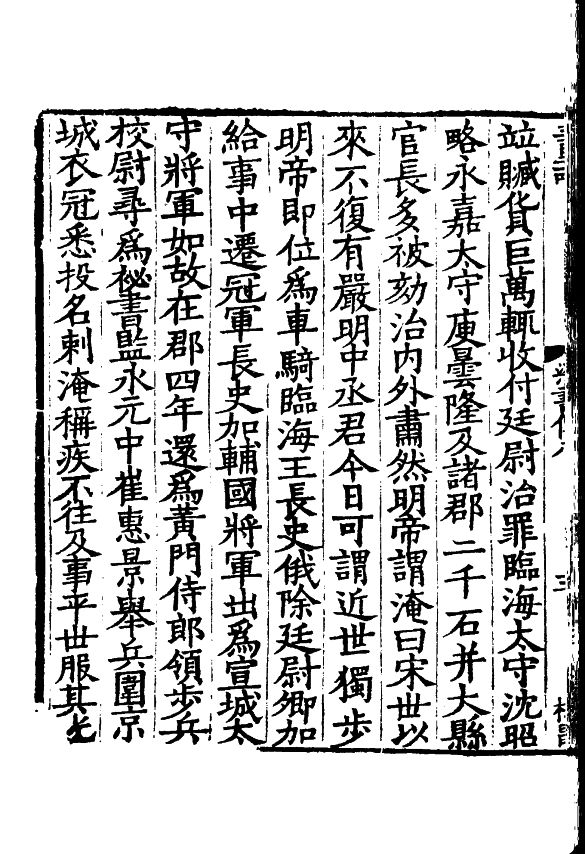 竝贓貨巨萬輒收付廷尉治罪臨海太守沈昭
略永嘉太守庾曇隆及諸郡二千石并大縣
官長多被劾治內外肅然明帝謂淹曰宋世以
來不復有嚴明中丞君今日可謂近世獨步
明帝即位爲車騎臨海王長史俄除廷尉卿加
給事中遷冠軍長史加輔國將軍出爲宣城太
守將軍如故在郡四年還爲黃門侍郎領步兵
校尉尋爲祕書監永元中崔惠景舉兵圍京
城衣冠悉投名刺淹稱疾不往及事平世服其先